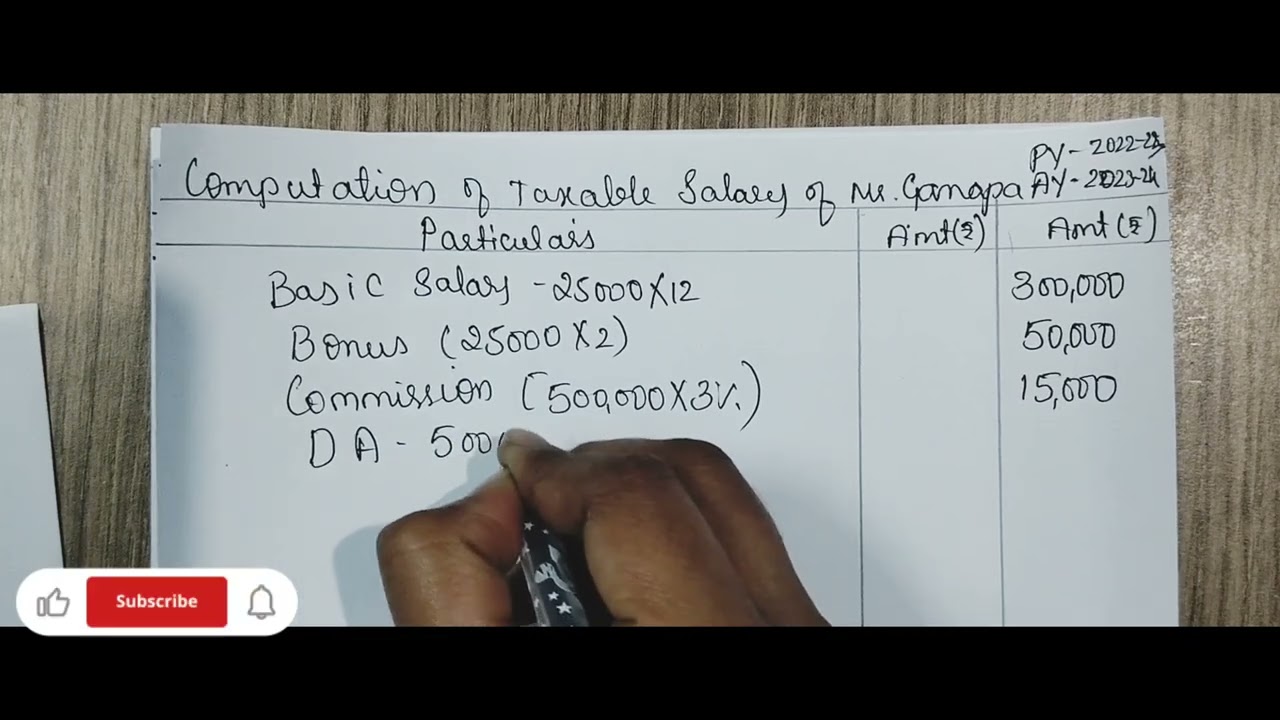 PY- 2022-23
Computation of Taxable Salary of Mr. Ganapa AY-2023-24
Particulars Amt(₹) Amt (₹)
Basic Salary - 25000X12 300,000
Bonus (25000X2) 50,000
Commission [500,000X3%) 15,000
DA - 500
Subscribe